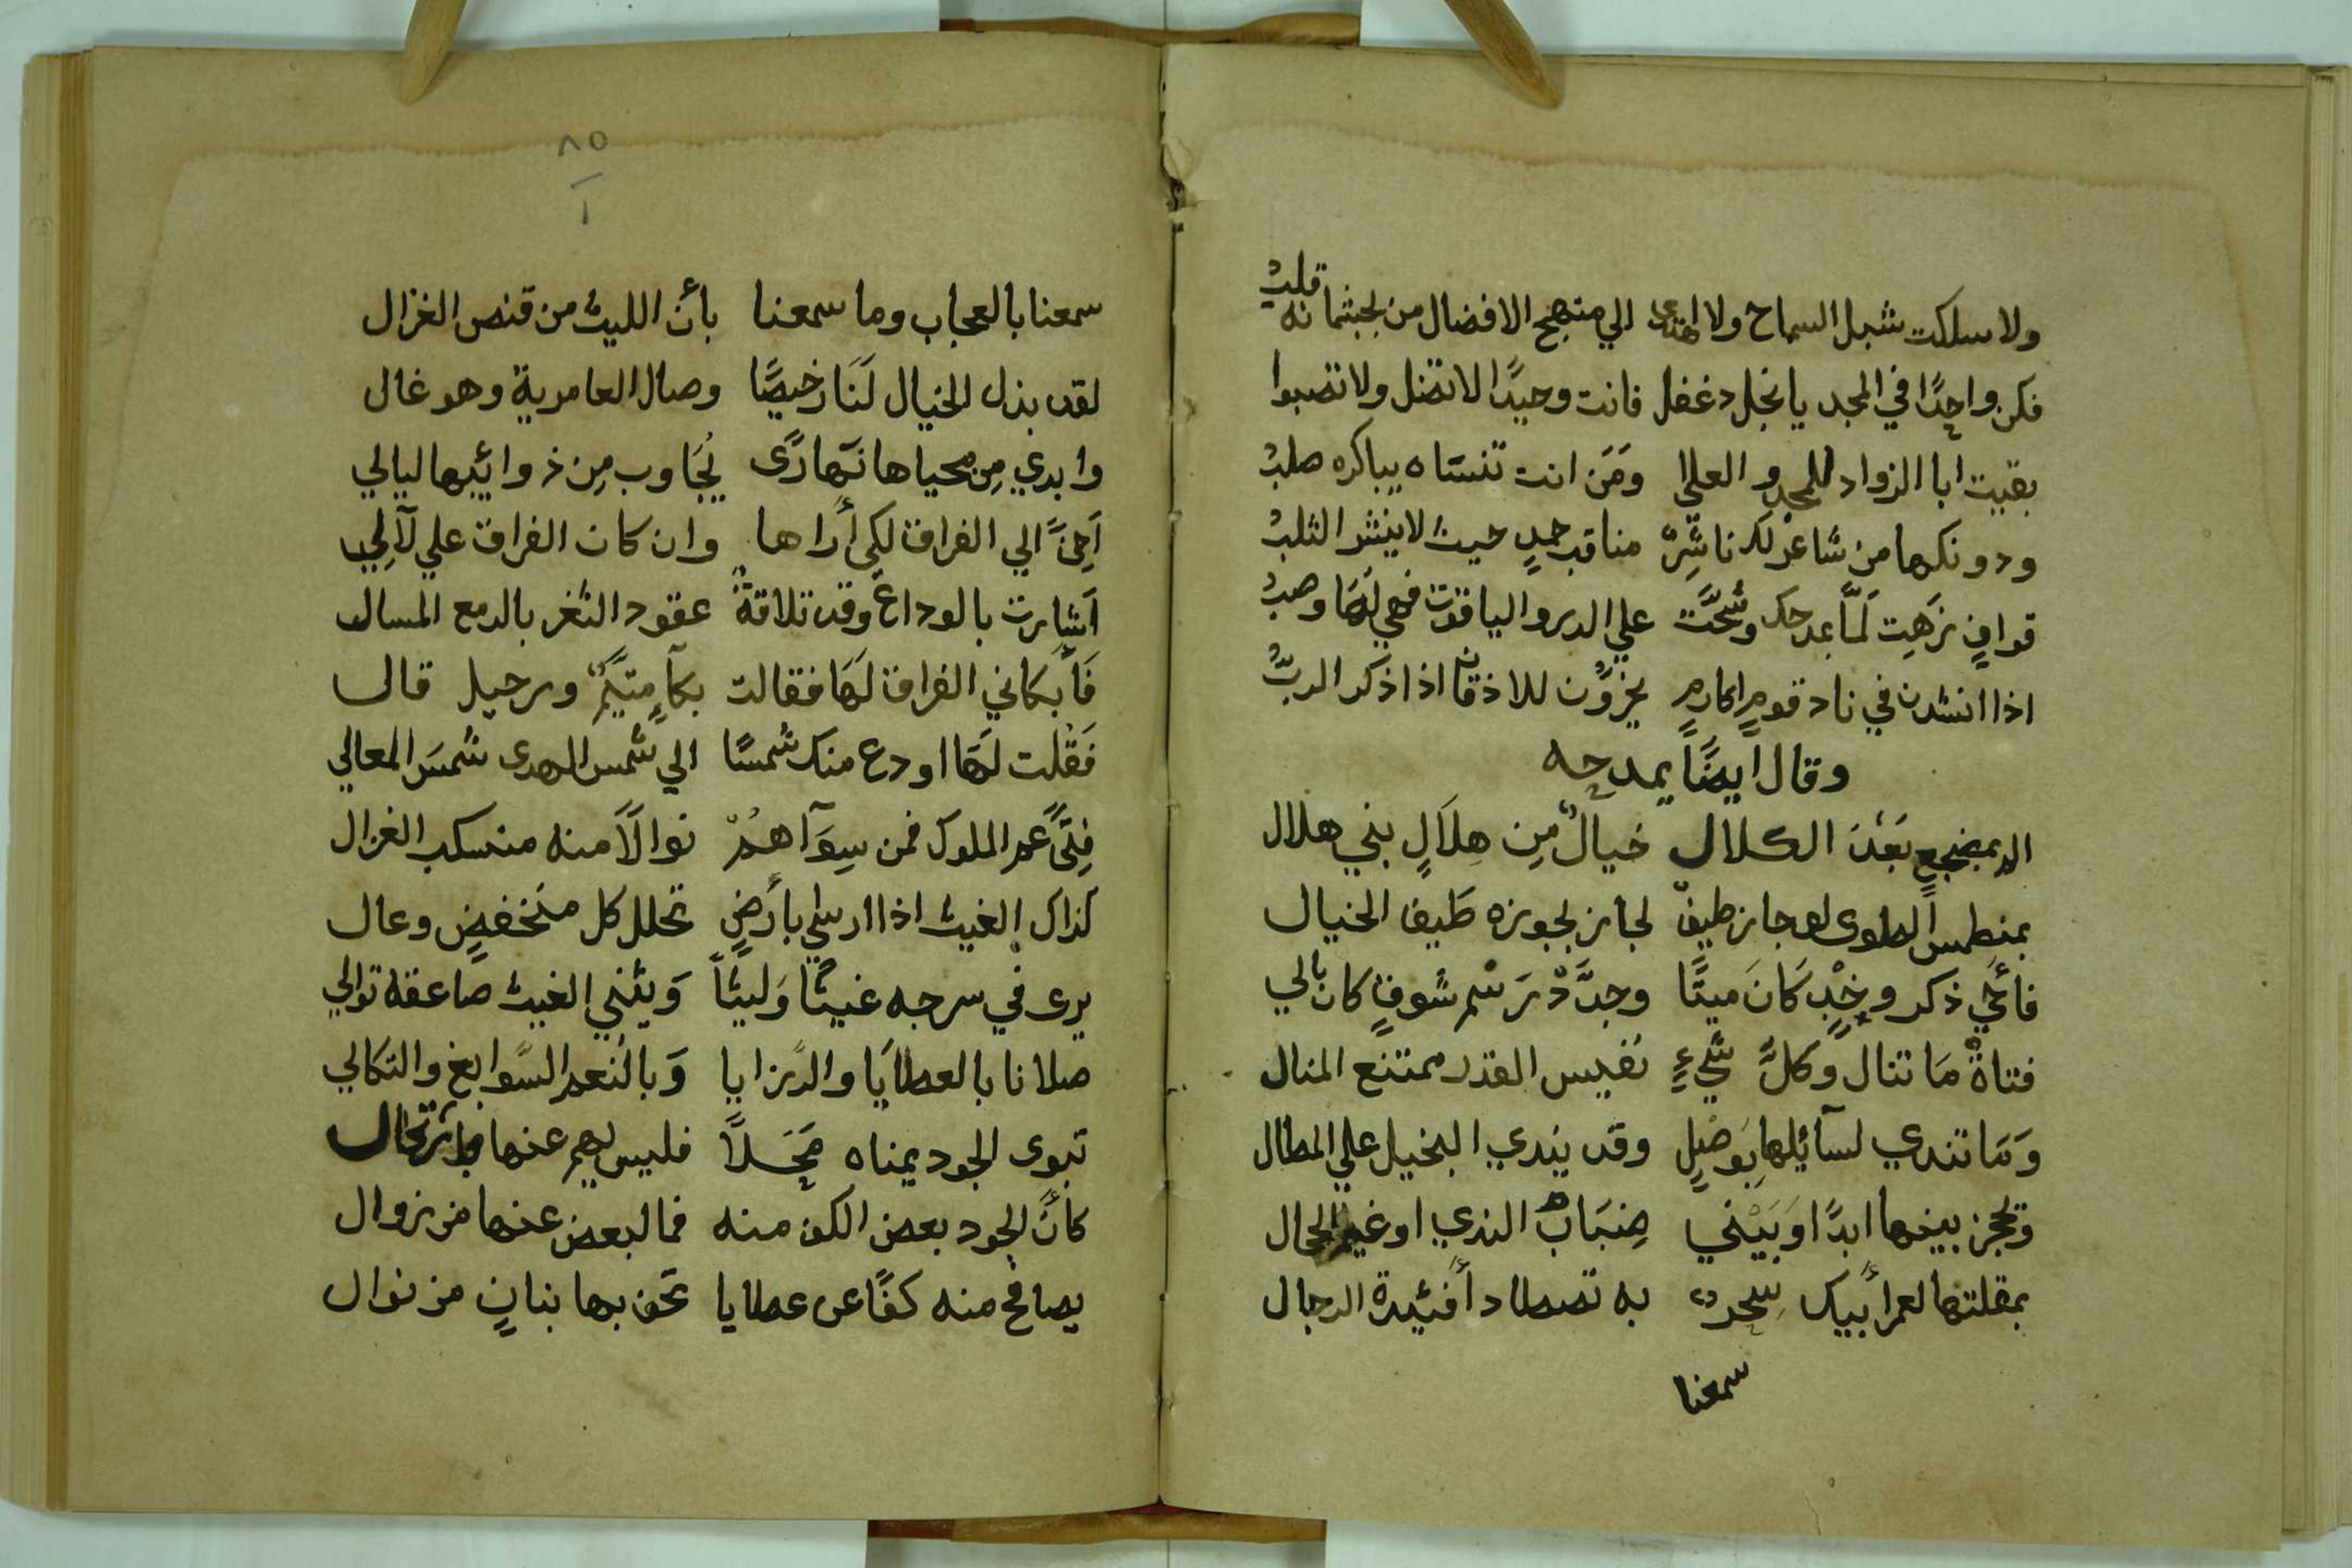 ولا سلكت شبل السماح ولا اهتدى الي منهج الافضال من بجثمانه قلب
فكن واحدًا في المجد يا نجل دغفل فانت وحيدًا لا تضل ولا تصبوا
بقيت ابا الزواد للمجد والعلا ومَن انت تنسَاه يباكره صلب
ودونكها من شاعر لك ناشِرٌ مناقب حمدٍ حيث لا ينشر الثلب
قوافٍ زَهِت لمَّا بمدحك وشحَّت علي الدر والياقوت فهي لهَا وصب
اذا انشدن في ناد قومٍ اكارمٍ يخرّون للاذقان اذا ذكر الربّ
وقال ايضًا يمدحه
الم بمضجع بَعْدَ الكلال خيالٌ مِن هِلاَلٍ بني هلال
بمنطمس الصوى لو جاز طيفٌ لجاز بجوزه طَيف الخيال
فأحي ذكر وخْدٍ كَانَ ميتًا وجدَّدْ رَسْم شوقٍ كان بالي
فتاةٌ مَا تنال وكلّ شيءٍ نفيس القدر ممتنع المنال
وَمَا تندي لسآئلها بِوَصْلٍ وقد يندي البخيل علي المطال
وتحجز بينها ابدًا وَبَيْني ضِبَابٌ الندي او غير الحال
بمقلتها لعمر أبيك سِحرٌ به تصطاد أفئيدة الرجال
سمعنا
٨٥
أ
سمعنا بالعجاب وما سمعنا بأن الليث من قنص الغزال
لقد بذل الخيال لَنَا رخيصًا وصال العامرية وهو غال
وابدي مِن محياها نهَارًى يُجَاوب مِن ذوائيبها ليالي
اَحِنّ الي الفراق لكي أراها وان كان الفراق علي لآلِي
اَشارت بالوداع وقد تلاقةْ عقود الثغر بالدمع المسال
فَأبكاني الفراق لهَا فقالت بكآءِ متيَّمٍ ورحيل قال
فَقْلت لهَا اودع منك شمسًا الي شمس الهدى شمسَ المعالي
فِتىً عم الملوك فمن سِوَآهمْ نوالاً منه منسكب الغزال
كذاك الغيث اذا ارسلي بأرضٍ تحلل كل منخفضٍ وعال
يرى في سرجه غيثًا وَليثًا وَيثني الغيث صاعقة توالي
صلانا بالعطايَا والرزايا وَبالنعم السَّوابغ والنكالي
تبوى الجود يمناه مَحَلاً فليس لهم عنها بارتحال
كأنّ الجود بعض الكف منه فما لبعض عنها من زوال
يصافح منه كفًا عن عطايا تحف بها بنانٍ من نوال